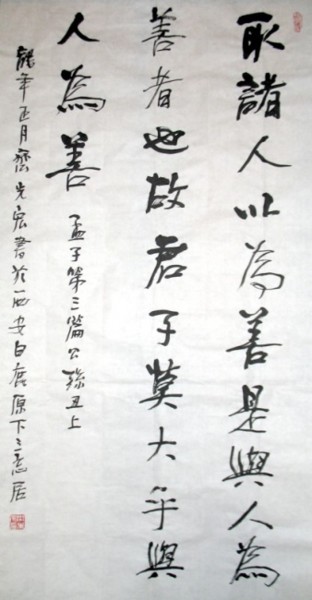 取諸人以為善是與人為
善者也故君子莫大乎與
人為善
孟子第三篇公孫丑上
龍年正月齊光宏書於西安白鹿原下三憲居